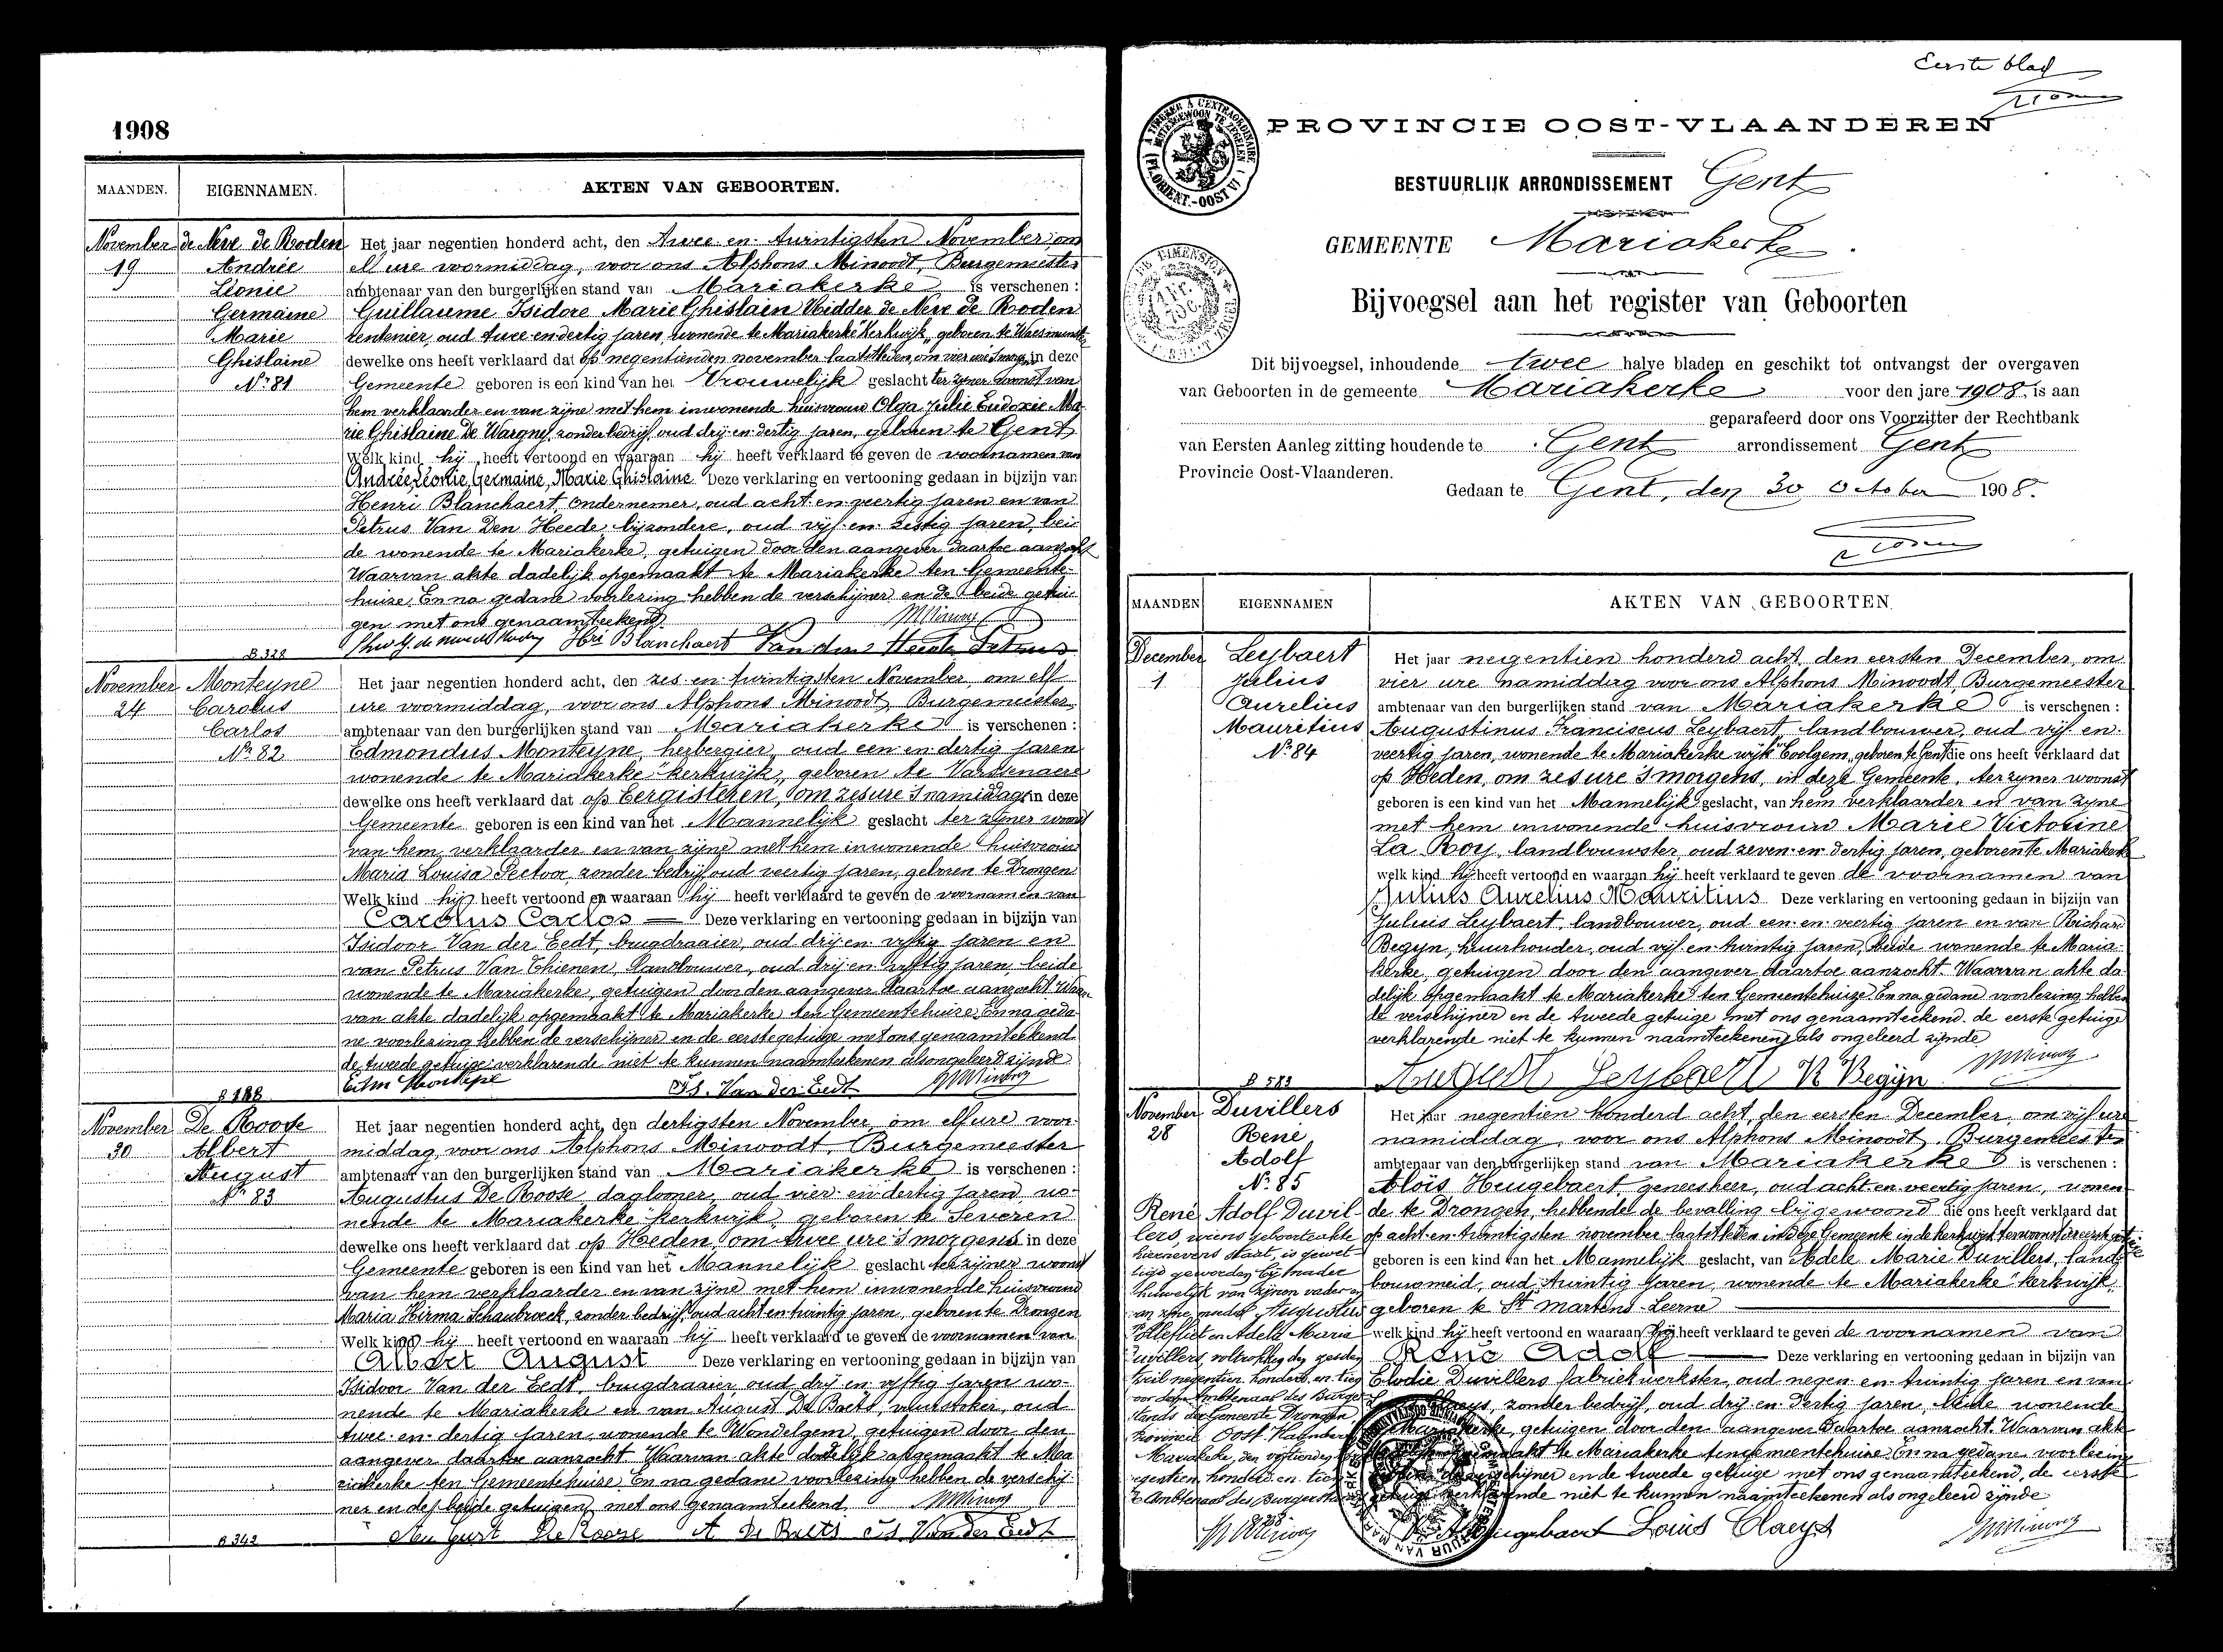 1908
MAANDEN. EIGENNAMEN. AKTEN VAN GEBOORTEN.
November 19
de Neve de Roden
Andrée
Léonie
Germaine
Marie
Ghislaine
Nr 81
Het jaar negentien honderd acht, den twee en twintigsten November, om
elf ure voormiddag, voor ons Alphons Minoodt, Burgemeester
ambtenaar van den burgerlijken stand van Mariakerke is verschenen :
Guillaume Isidore Marie Ghislain Ridder de Neve de Roden
rentenier, oud twee-en-dertig jaren, wonende te Mariakerke "kerkwijk, geboren te Waesmunst.
dewelke ons heeft verklaard dat op negentienden november laatstleden, om vier ure 's morg. in deze
Gemeente geboren is een kind van het Vrouwelijk geslacht ter zijner woonst van
hem verklaarder en van zijne met hem inwonende huisvrouw Olga Julie Eudoxie Ma-
rie Ghislaine De Wargny, zonder bedrijf, oud drij-en-dertig jaren, geboren te Gent
Welk kind hij heeft vertoond en waaraan hij heeft verklaard te geven de voornamen van
Andrée, Léonie, Germaine, Marie Ghislaine Deze verklaring en vertooning gedaan in bijzijn van
Henri Blanchaert, ondernemer, oud acht-en-veertig jaren en van
Petrus Van Den Heede, bijzondere, oud vijf-en-zestig jaren, bei-
de wonende te Mariakerke, getuigen door den aangever daartoe aanzocht
Waarvan akte dadelijk opgemaakt te Mariakerke ten Gemeente-
huize. En na gedane voorlezing hebben de verschijner en de beide getui-
gen met ons genaamteekend.
Hri Blanchaert Van den Heede Petrus
B 328
November 24
Monteyne
Carolus
Carlos
Nr 82
Het jaar negentien honderd acht, den zes-en-twintigsten November, om elf
ure voormiddag, voor ons Alphons Minoodt, Burgemeester
ambtenaar van den burgerlijken stand van Mariakerke is verschenen :
Edmondus Monteyne, herbergier, oud een-en-dertig jaren
wonende te Mariakerke "kerkwijk, geboren te Varssenaere
dewelke ons heeft verklaard dat op Eergisteren, om zes ure 's namiddags in deze
Gemeente geboren is een kind van het Mannelijk geslacht ter zijner woonst
van hem verklaarder en van zijne met hem inwonende huisvrouw
Maria Louisa Pectoor, zonder bedrijf, oud veertig jaren, geboren te Drongen
Welk kind hij heeft vertoond en waaraan hij heeft verklaard te geven de voornamen van
Carolus Carlos — Deze verklaring en vertooning gedaan in bijzijn van
Isidoor Van der Eedt, brugdraaier, oud drij-en-vijftig jaren en
van Petrus Van Thienen, landbouwer, oud drij-en-vijftig jaren, beide
wonende te Mariakerke, getuigen door den aangever daartoe aanzocht. Waar-
van akte dadelijk opgemaakt te Mariakerke ten Gemeentehuize. En na geda-
ne voorlezing hebben de verschijner en de eerste getuige met ons genaamteekend
de tweede getuige verklarende niet te kunnen naamteekenen als ongeleerd zijnde
Is. Van der Eedt
November 30
De Roose
Albert
August
Nr 83
Het jaar negentien honderd acht, den dertigsten November, om elf ure voor-
middag, voor ons Alphons Minoodt, Burgemeester
ambtenaar van den burgerlijken stand van Mariakerke is verschenen :
Augustus De Roose, daglooner, oud vier-en-dertig jaren, wo-
nende te Mariakerke "kerkwijk, geboren te Severen
dewelke ons heeft verklaard dat op Heden, om twee ure 's morgens in deze
Gemeente geboren is een kind van het Mannelijk geslacht te zijner woonst
van hem verklaarder en van zijne met hem inwonende huisvrouw
Maria Hirma Schaubroeck, zonder bedrijf, oud acht-en-twintig jaren, geboren te Drongen
Welk kind hij heeft vertoond en waaraan hij heeft verklaard te geven de voornamen van
Albert August Deze verklaring en vertooning gedaan in bijzijn van
Isidoor Van der Eedt, brugdraaier, oud drij-en-vijftig jaren wo-
nende te Mariakerke en van August De Baets, vuurstoker, oud
twee-en-dertig jaren, wonende te Wondelgem, getuigen door den
aangever daartoe aanzocht. Waarvan akte dadelijk opgemaakt te Ma-
riakerke ten Gemeentehuize. En na gedane voorlezing hebben de verschij-
ner en de beide getuigen met ons genaamteekend.
August De Roose A De Baets Is. Van der Eedt
B 342
Eerste blad
PROVINCIE OOST-VLAANDEREN
BESTUURLIJK ARRONDISSEMENT Gent
GEMEENTE Mariakerke.
Bijvoegsel aan het register van Geboorten
Dit bijvoegsel, inhoudende twee halve bladen en geschikt tot ontvangst der overgaven
van Geboorten in de gemeente Mariakerke voor den jare 1908. is aan
geparafeerd door ons Voorzitter der Rechtbank
van Eersten Aanleg zitting houdende te Gent arrondissement Gent
Provincie Oost-Vlaanderen.
Gedaan te Gent, den 30 october 1908.
MAANDEN EIGENNAMEN AKTEN VAN GEBOORTEN
December 1
Leybaert
Julius
Aurelius
Mauritius
Nr 84
Het jaar negentien honderd acht, den eersten December, om
vier ure namiddag voor ons Alphons Minoodt, Burgemeester
ambtenaar van den burgerlijken stand van Mariakerke is verschenen :
Augustinus Franciscus Leybaert, landbouwer, oud vijf-en-
veertig jaren, wonende te Mariakerke wijk "Coolgem, geboren te Gent die ons heeft verklaard dat
op Heden, om zes ure 's morgens, in deze Gemeente, ter zijner woonst
geboren is een kind van het Mannelijk geslacht, van hem verklaarder en van zijne
met hem inwonende huisvrouw Marie Victorine
La Roy, landbouwster, oud zeven-en-dertig jaren, geboren te Mariakerk
welk kind hij heeft vertoond en waaraan hij heeft verklaard te geven de voornamen van
Julius Aurelius Mauritius Deze verklaring en vertooning gedaan in bijzijn van
Julius Leybaert, landbouwer, oud een-en-veertig jaren en van Richard
Begyn, huurhouder, oud vijf-en-twintig jaren, beide wonende te Maria-
kerke, getuigen door den aangever daartoe aanzocht. Waarvan akte da-
delijk opgemaakt te Mariakerke ten Gemeentehuize. En na gedane voorlezing hebben
de verschijner en de tweede getuige met ons genaamteekend. de eerste getuige
verklarende niet te kunnen naamteekenen als ongeleerd zijnde
August Leybaert R Begijn
B 583
November 28
Duvillers
René
Adolf
Nr 85
Het jaar negentien honderd acht, den eersten December, om vijf ure
namiddag, voor ons Alphons Minoodt, Burgemeester
ambtenaar van den burgerlijken stand van Mariakerke is verschenen :
Aloïs Heugebaert, geneesheer, oud acht-en-veertig jaren, wonen-
de te Drongen, hebbende de bevalling bijgewoond die ons heeft verklaard dat
op acht-en-twintigsten november laatstleden in deze Gemeente in de kerkwijk
geboren is een kind van het Mannelijk geslacht, van Adele Marie Duvillers, land-
bouwmeid, oud twintig jaren, wonende te Mariakerke "kerkwijk,
geboren te St Martens-Leerne
welk kind hij heeft vertoond en waaraan hij heeft verklaard te geven de voornamen van
René Adolf — Deze verklaring en vertooning gedaan in bijzijn van
Elodie Duvillers fabriekwerkster, oud negen-en-twintig jaren en van
zonder bedrijf, oud drij-en-dertig jaren, beide wonende
getuigen door den aangever daartoe aanzocht. Waarvan akte
te Mariakerke ten gemeentehuize. En na gedane voorlezing
verschijner en de tweede getuige met ons genaamteekend, de eerste
verklarende niet te kunnen naamteekenen als ongeleerd zijnde
Louis Claeys
René Adolf Duvil-
lers, wiens geboorteakte
hiernevens staat, is gewet-
tigd geworden bij nader
huwelijk van zijnen vader en
Augustus
en Adele Maria
Duvillers voltrokken den
negentien honderd en tien
voor den Ambtenaar des Burger
stands der Gemeente Drongen,
Provincie Oost Vlaanderen
Mariakerke, den
negentien honderd en tien